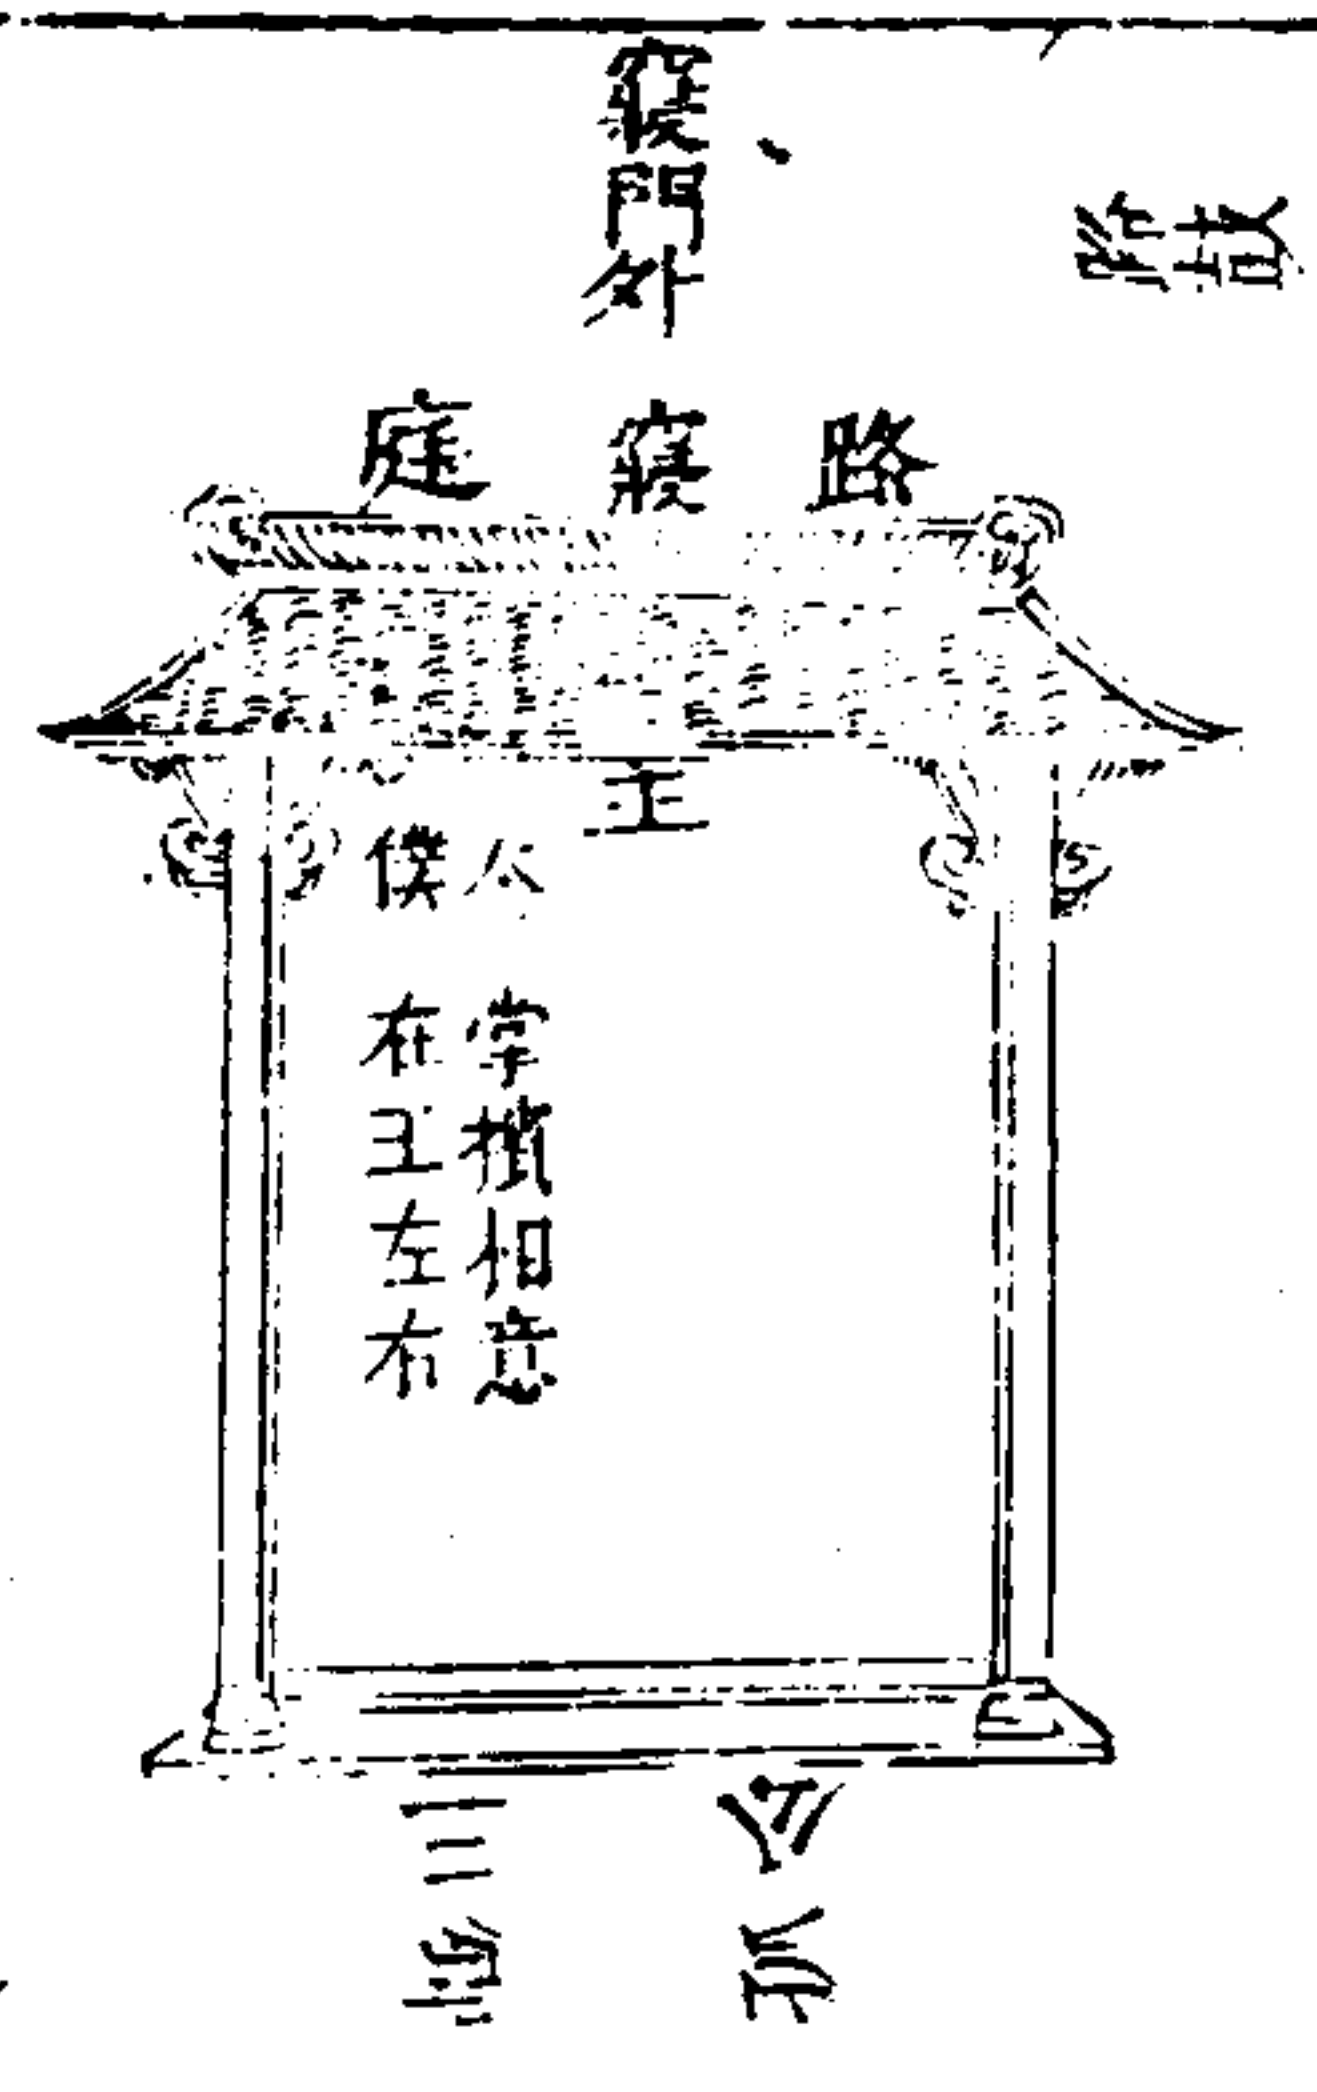 寢門外
路寢庭
王
僕
掌擯相意
在王左右
三
公
孤